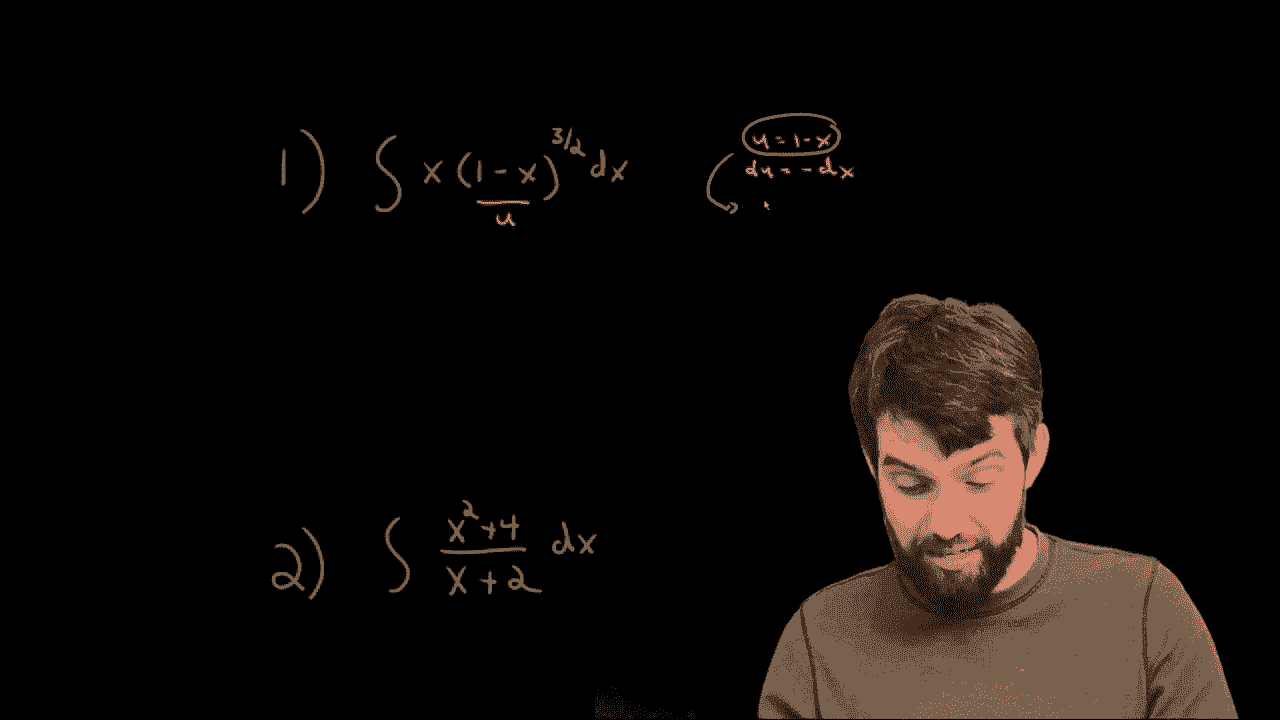 1) ∫ x (1 - x)^{3/2} dx
u
u = 1 - x
du = - dx
2) ∫ \frac{x^2 + 4}{x + 2} dx